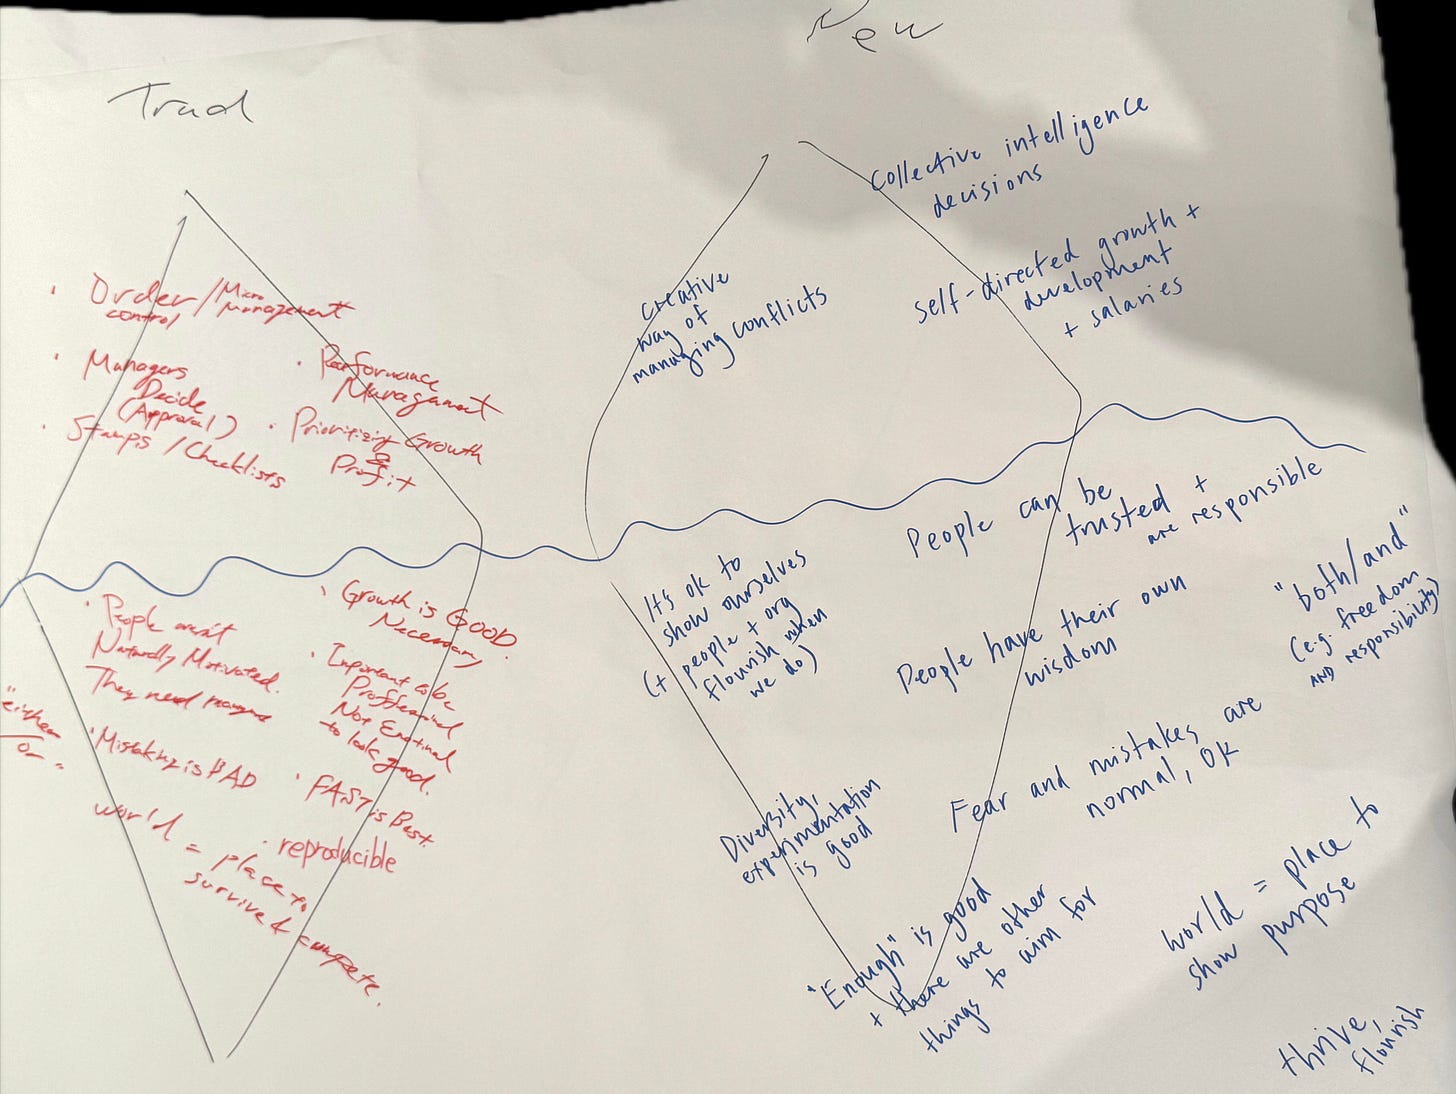 Trad
• Order / Micro
control Management
• Managers
Decide
(Approval)
• Stamps / Checklists
• Performance
Management
• Prioritizing Growth
&
Profit
• People aren't
Naturally Motivated.
They need
• Growth is GOOD
Necessary.
• Important to be
Proffesional
Not Emotional
to look good.
"either
or"
• Mistaking is BAD
• FAST is Best.
• reproducible
world
= place to
survive & compete.
New
collective intelligence
decisions
self-directed growth +
development
+ salaries
creative
way of
managing conflicts
People can be
trusted +
are responsible
It's ok to
show ourselves
(+ people + org
flourish when
we do)
People have their own
wisdom
"both/and"
(e.g. freedom
AND responsibility)
Fear and mistakes are
normal, OK
Diversity,
experimentation
is good
"Enough" is good
+ there are other
things to aim for
world = place to
show purpose
thrive,
flourish